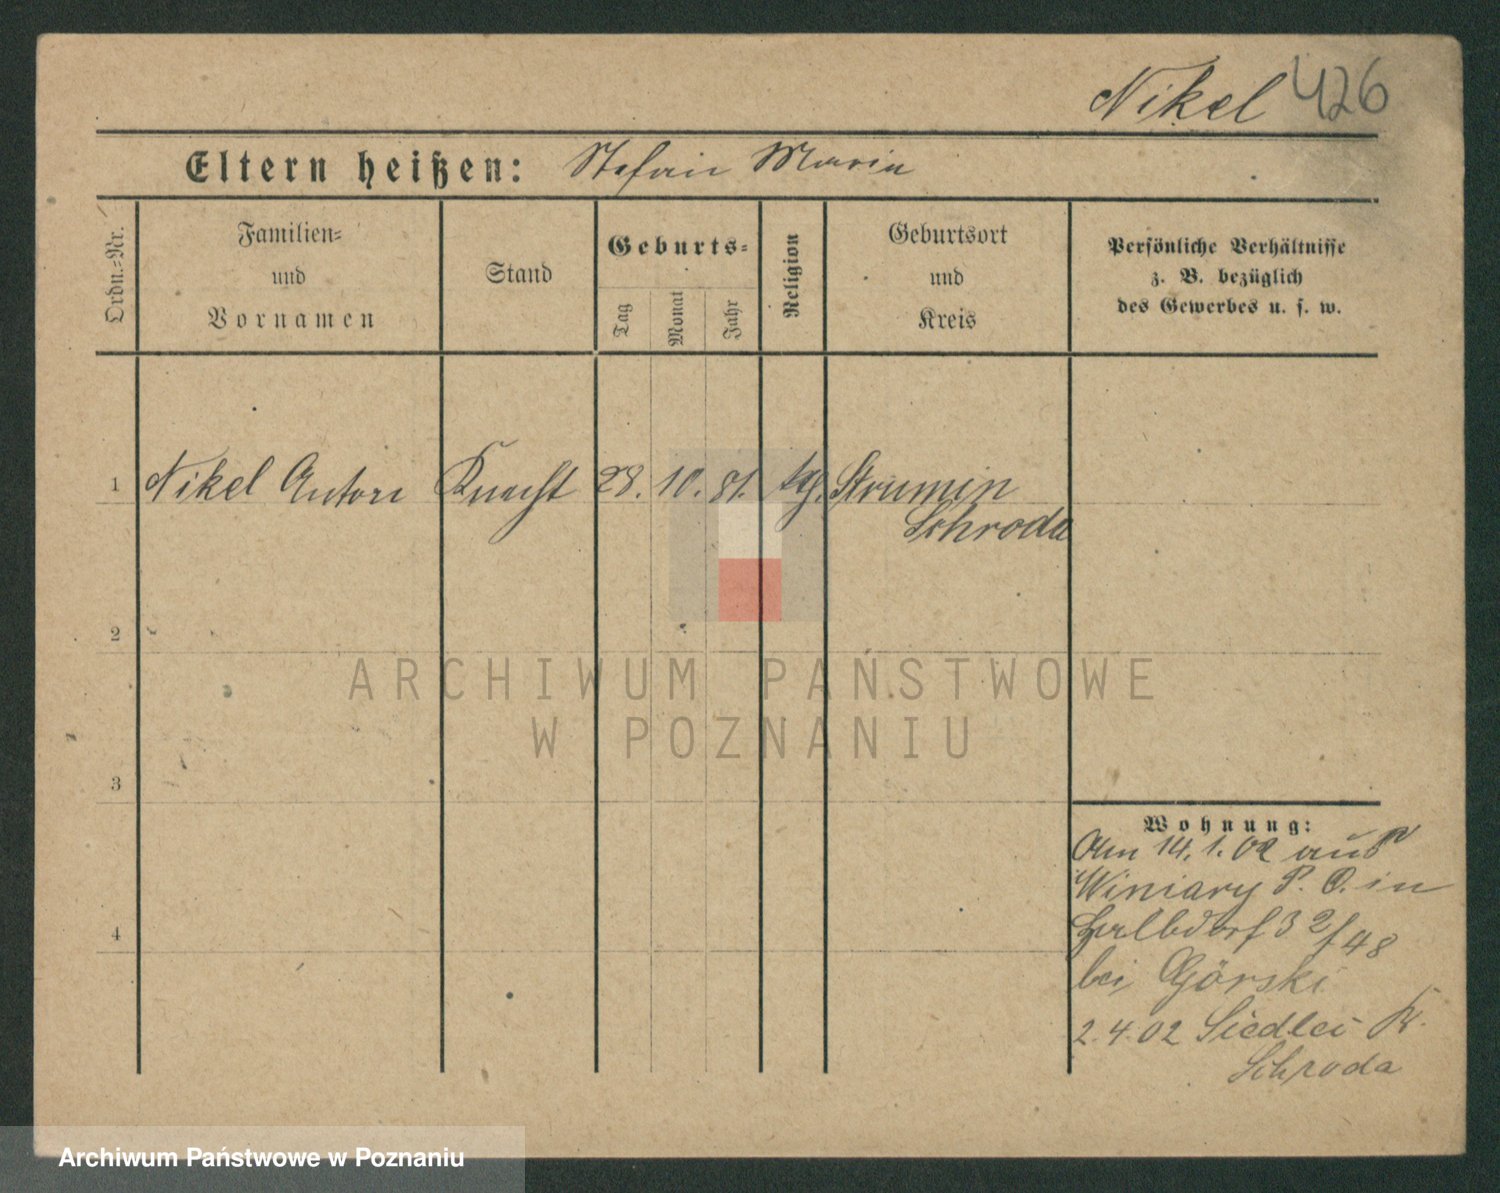 Nikel 426
Eltern heißen: Stefan Maria
Ordn.-Nr.
Familien-
und
Vornamen
Stand
Geburts-
Tag
Monat
Jahr
Religion
Geburtsort
und
Kreis
Persönliche Verhältnisse
z. B. bezüglich
des Gewerbes u. s. w.
1 Nikel Anton Knecht 28. 10. 81. Strumin
Schroda
2
3
4
Wohnung:
Am 14.1.02 aus
Winiary P. O. in
Halbdorf 32/48
bei Górski
2.4.02 Siedlec Kr.
Schroda
ARCHIWUM PAŃSTWOWE
W POZNANIU
Archiwum Państwowe w Poznaniu